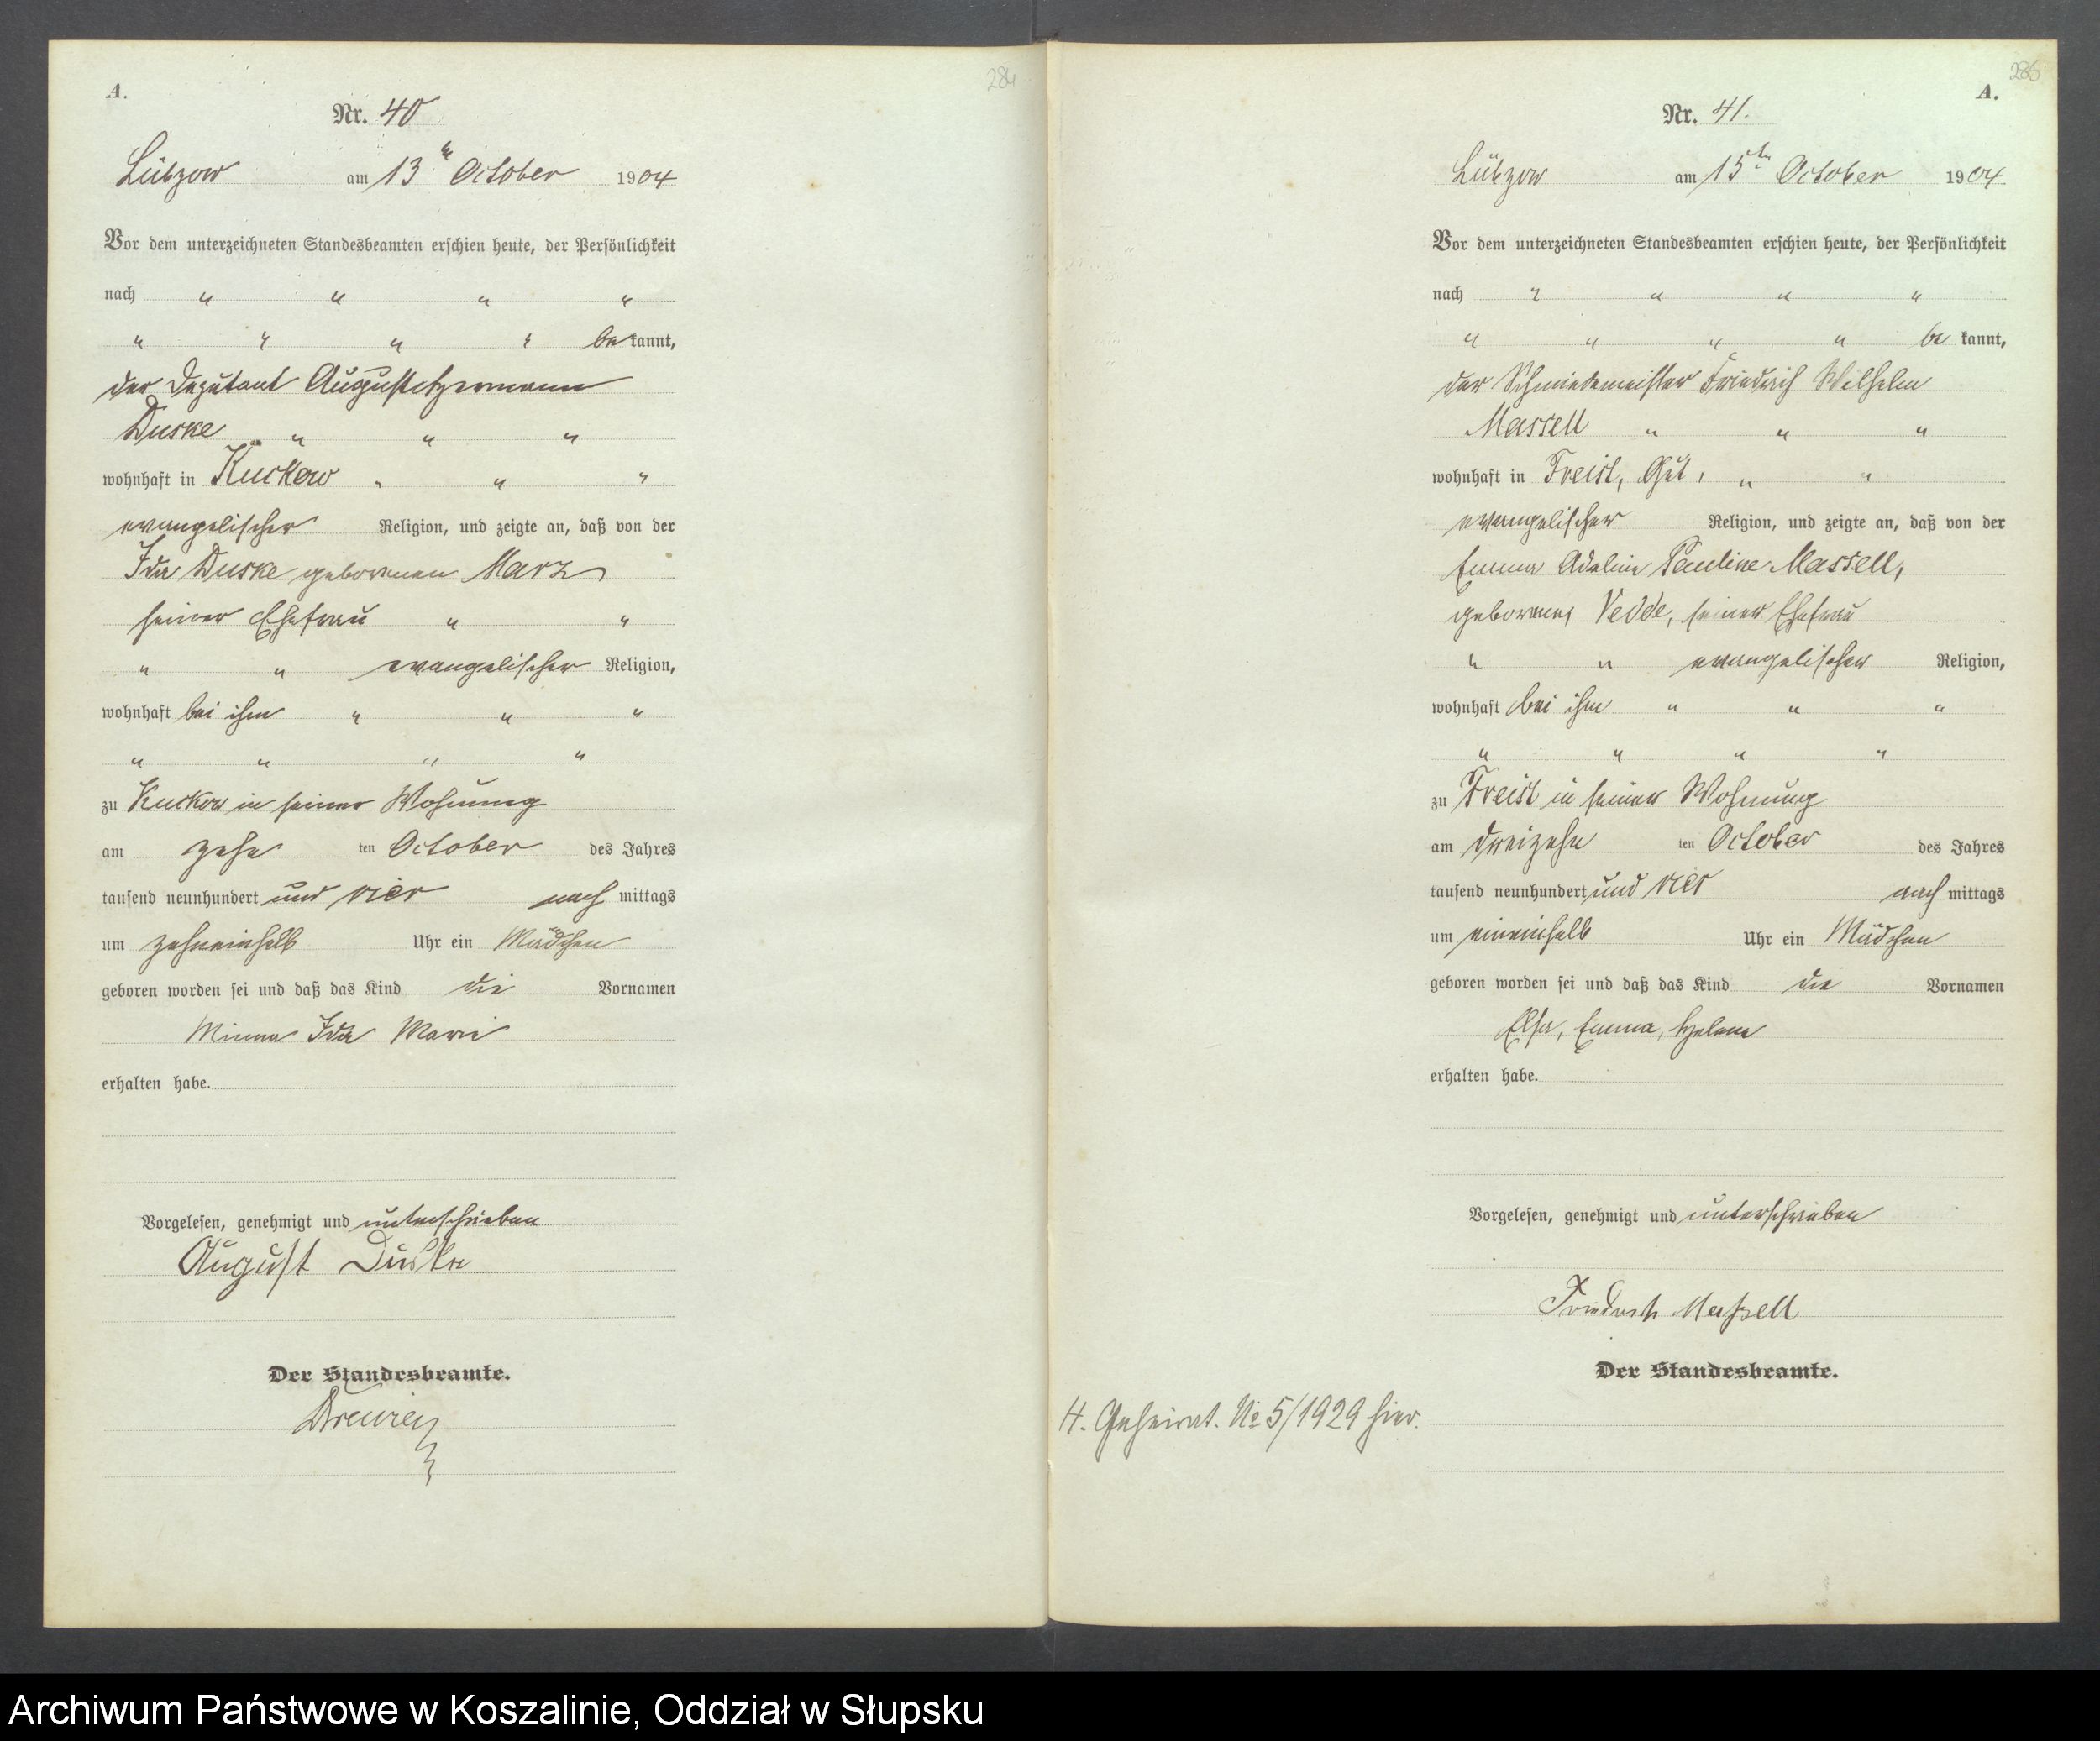 284
A.
Nr. 40
Lübzow am 13ten October 1904
Vor dem unterzeichneten Standesbeamten erschien heute, der Persönlichkeit
nach " " " "
" " " " be kannt,
der Deputant August Hermann
Duske " " "
wohnhaft in Kuckow " " "
evangelischer Religion, und zeigte an, daß von der
Ida Duske geborenen Marz
seiner Ehefrau " "
" " evangelischer Religion,
wohnhaft bei ihm " " "
" " " "
zu Kuckow in seiner Wohnung
am zehn ten October des Jahres
tausend neunhundert und vier nach mittags
um zehneinhalb Uhr ein Mädchen
geboren worden sei und daß das Kind die Vornamen
Minna Ida Marie
erhalten habe.
Vorgelesen, genehmigt und unterschrieben
August Duske
Der Standesbeamte.
285
A.
Nr. 41.
Lübzow am 15ten October 1904
Vor dem unterzeichneten Standesbeamten erschien heute, der Persönlichkeit
nach " " " "
" " " " be kannt,
der Schmiedemeister Friedrich Wilhelm
Massell " " "
wohnhaft in Freist, Gut, " "
evangelischer Religion, und zeigte an, daß von der
Emma Adeline Pauline Massell,
geborenen Vedde, seiner Ehefrau
" " evangelischer Religion,
wohnhaft bei ihm " " "
" " " "
zu Freist in seiner Wohnung
am dreizehn ten October des Jahres
tausend neunhundert und vier nach mittags
um eineinhalb Uhr ein Mädchen
geboren worden sei und daß das Kind die Vornamen
Elsa, Emma, Helene
erhalten habe.
Vorgelesen, genehmigt und unterschrieben
Friedrich Maßell
Der Standesbeamte.
Geheirat. No 5/1929 hier.
Archiwum Państwowe w Koszalinie, Oddział w Słupsku